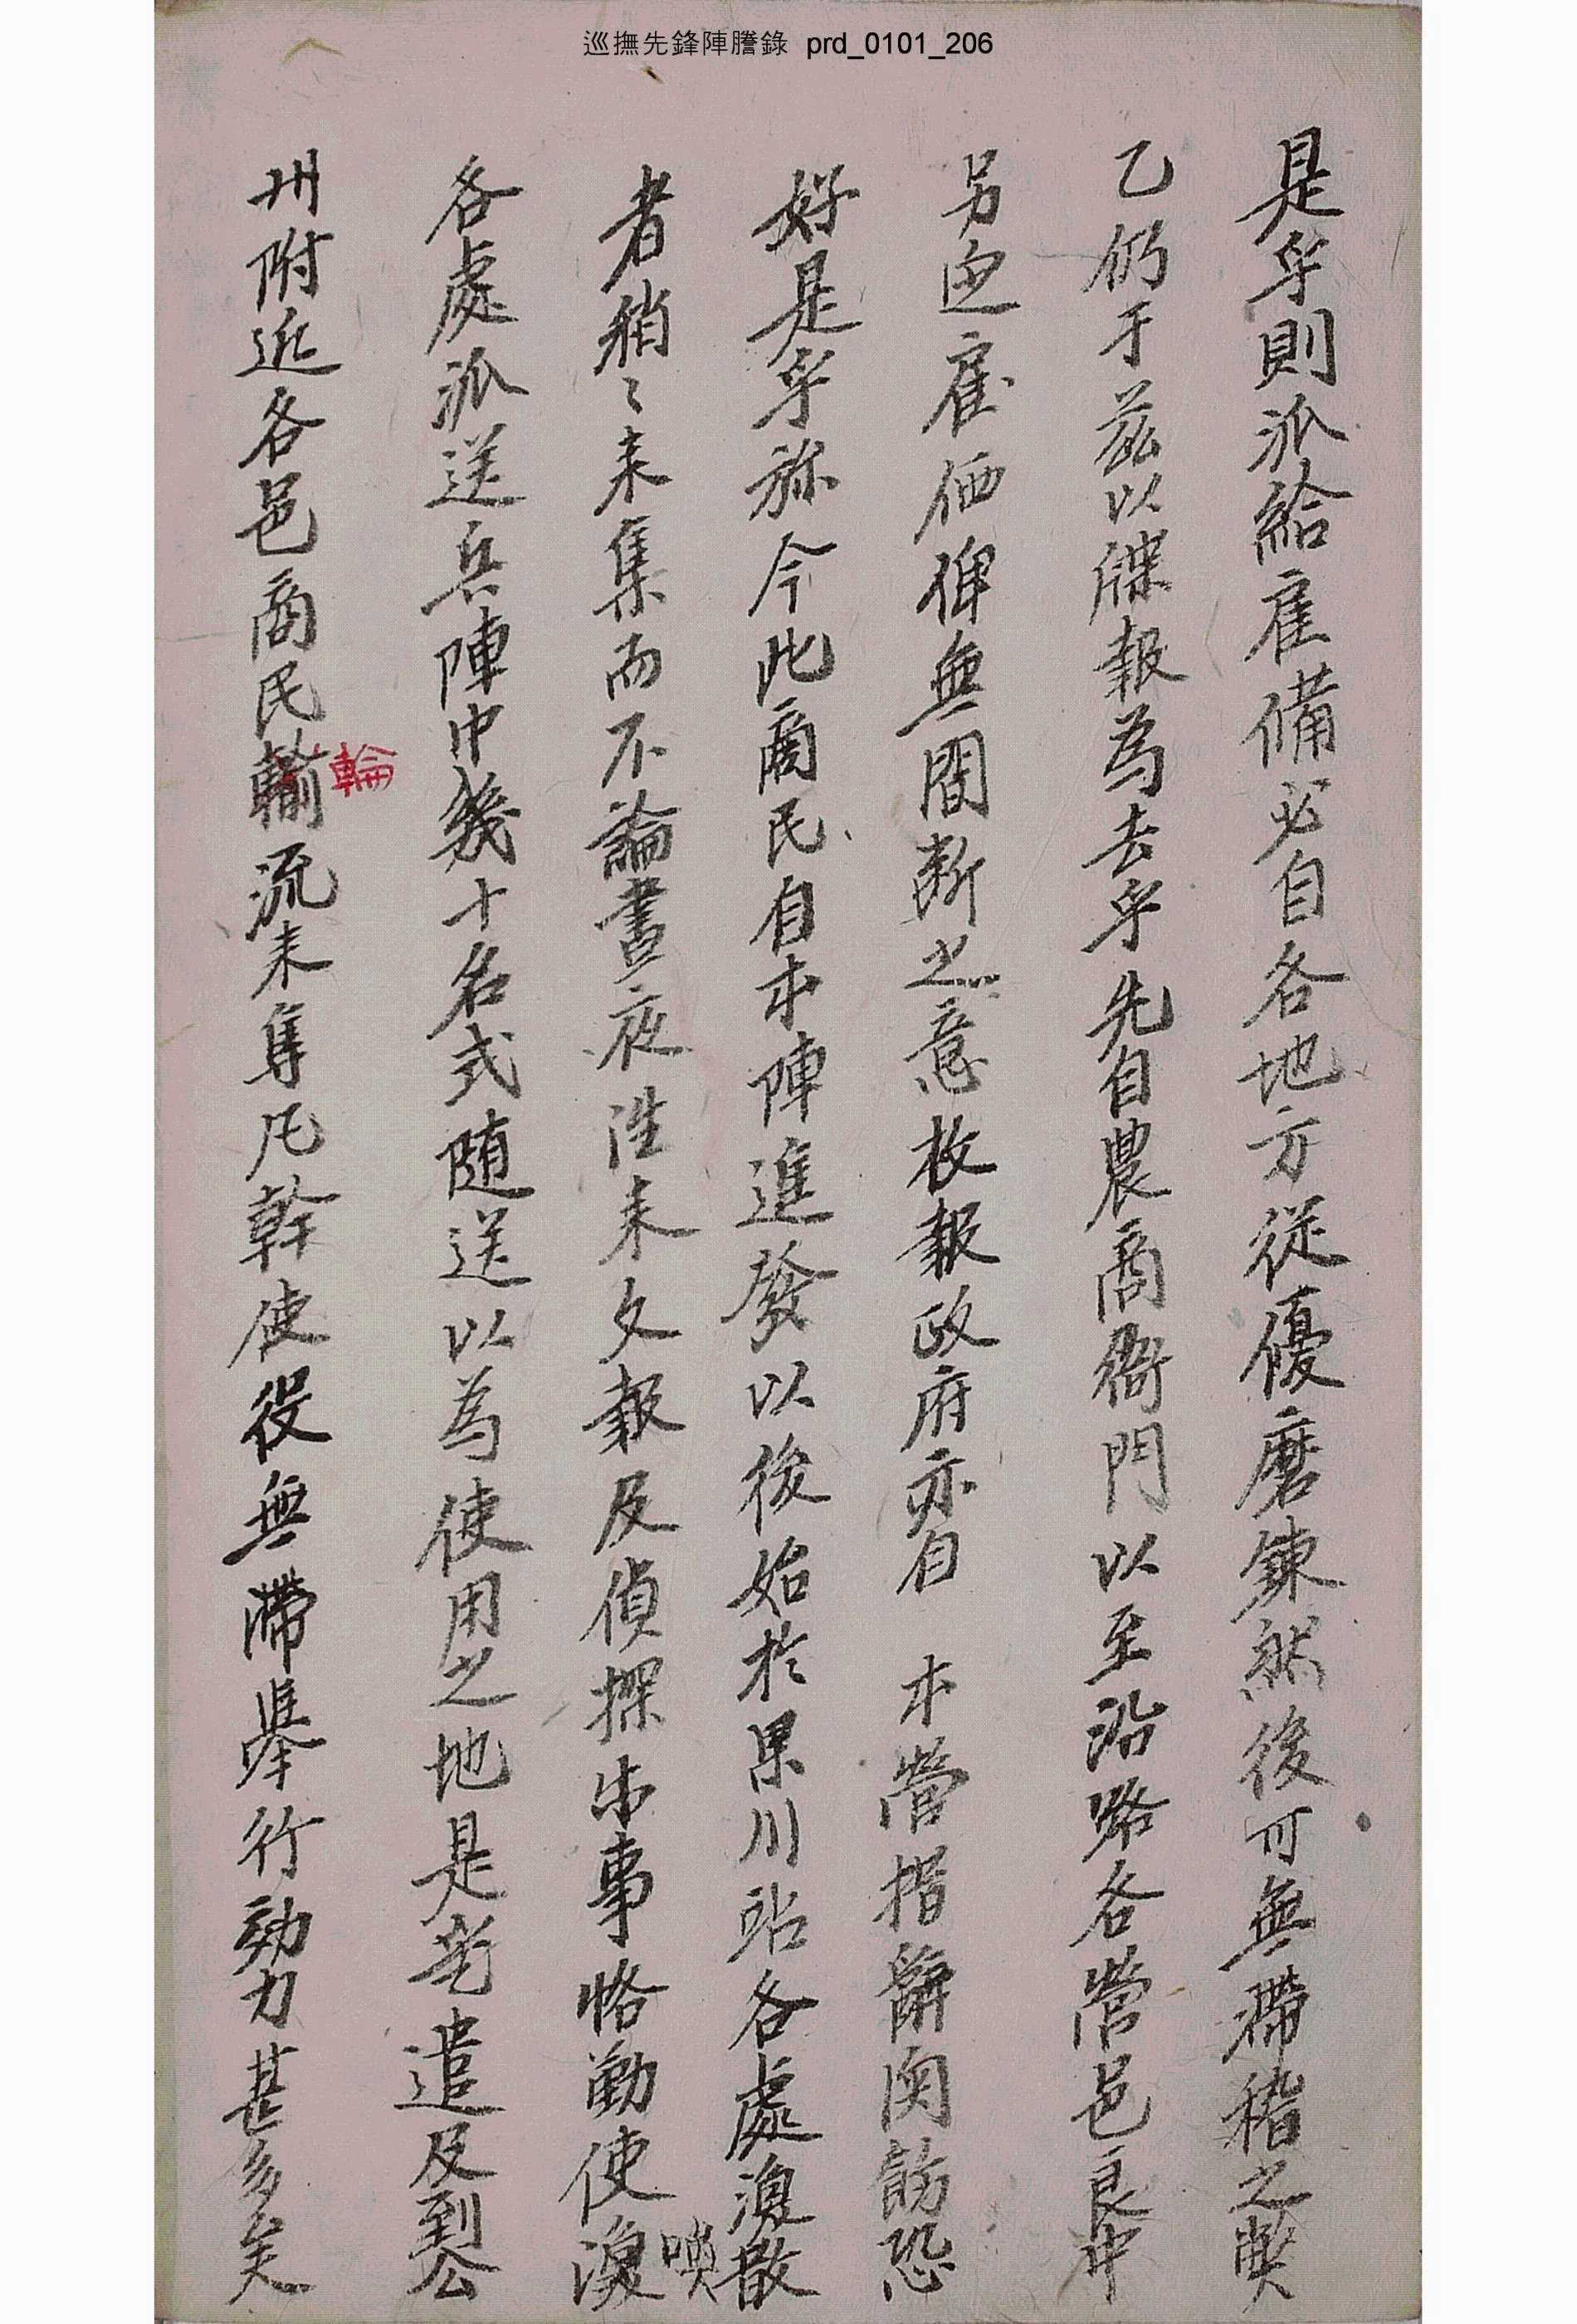 巡撫先鋒陣謄錄 prd_0101_206
是乎則派給雇備必自各地方從優磨鍊然後可無滯稽之弊
乙仍于玆以牒報爲去乎先自農商衙門以至沿路各營邑良中
另宜雇価俾無間断之意枚報政府亦自 本營措辭関飭恐
好是乎㫆今此商民自本陣進發以後始於果川站各處渙散
者稍〻來集而不論晝夜徃來文報及偵探等事恪勤使渙
喚
各處派送兵陣中幾十名式随送以爲使用之地是乎遣及到公
州附近各邑商民輸流來隻凡幹使役無滯擧行効力甚多矣
輪